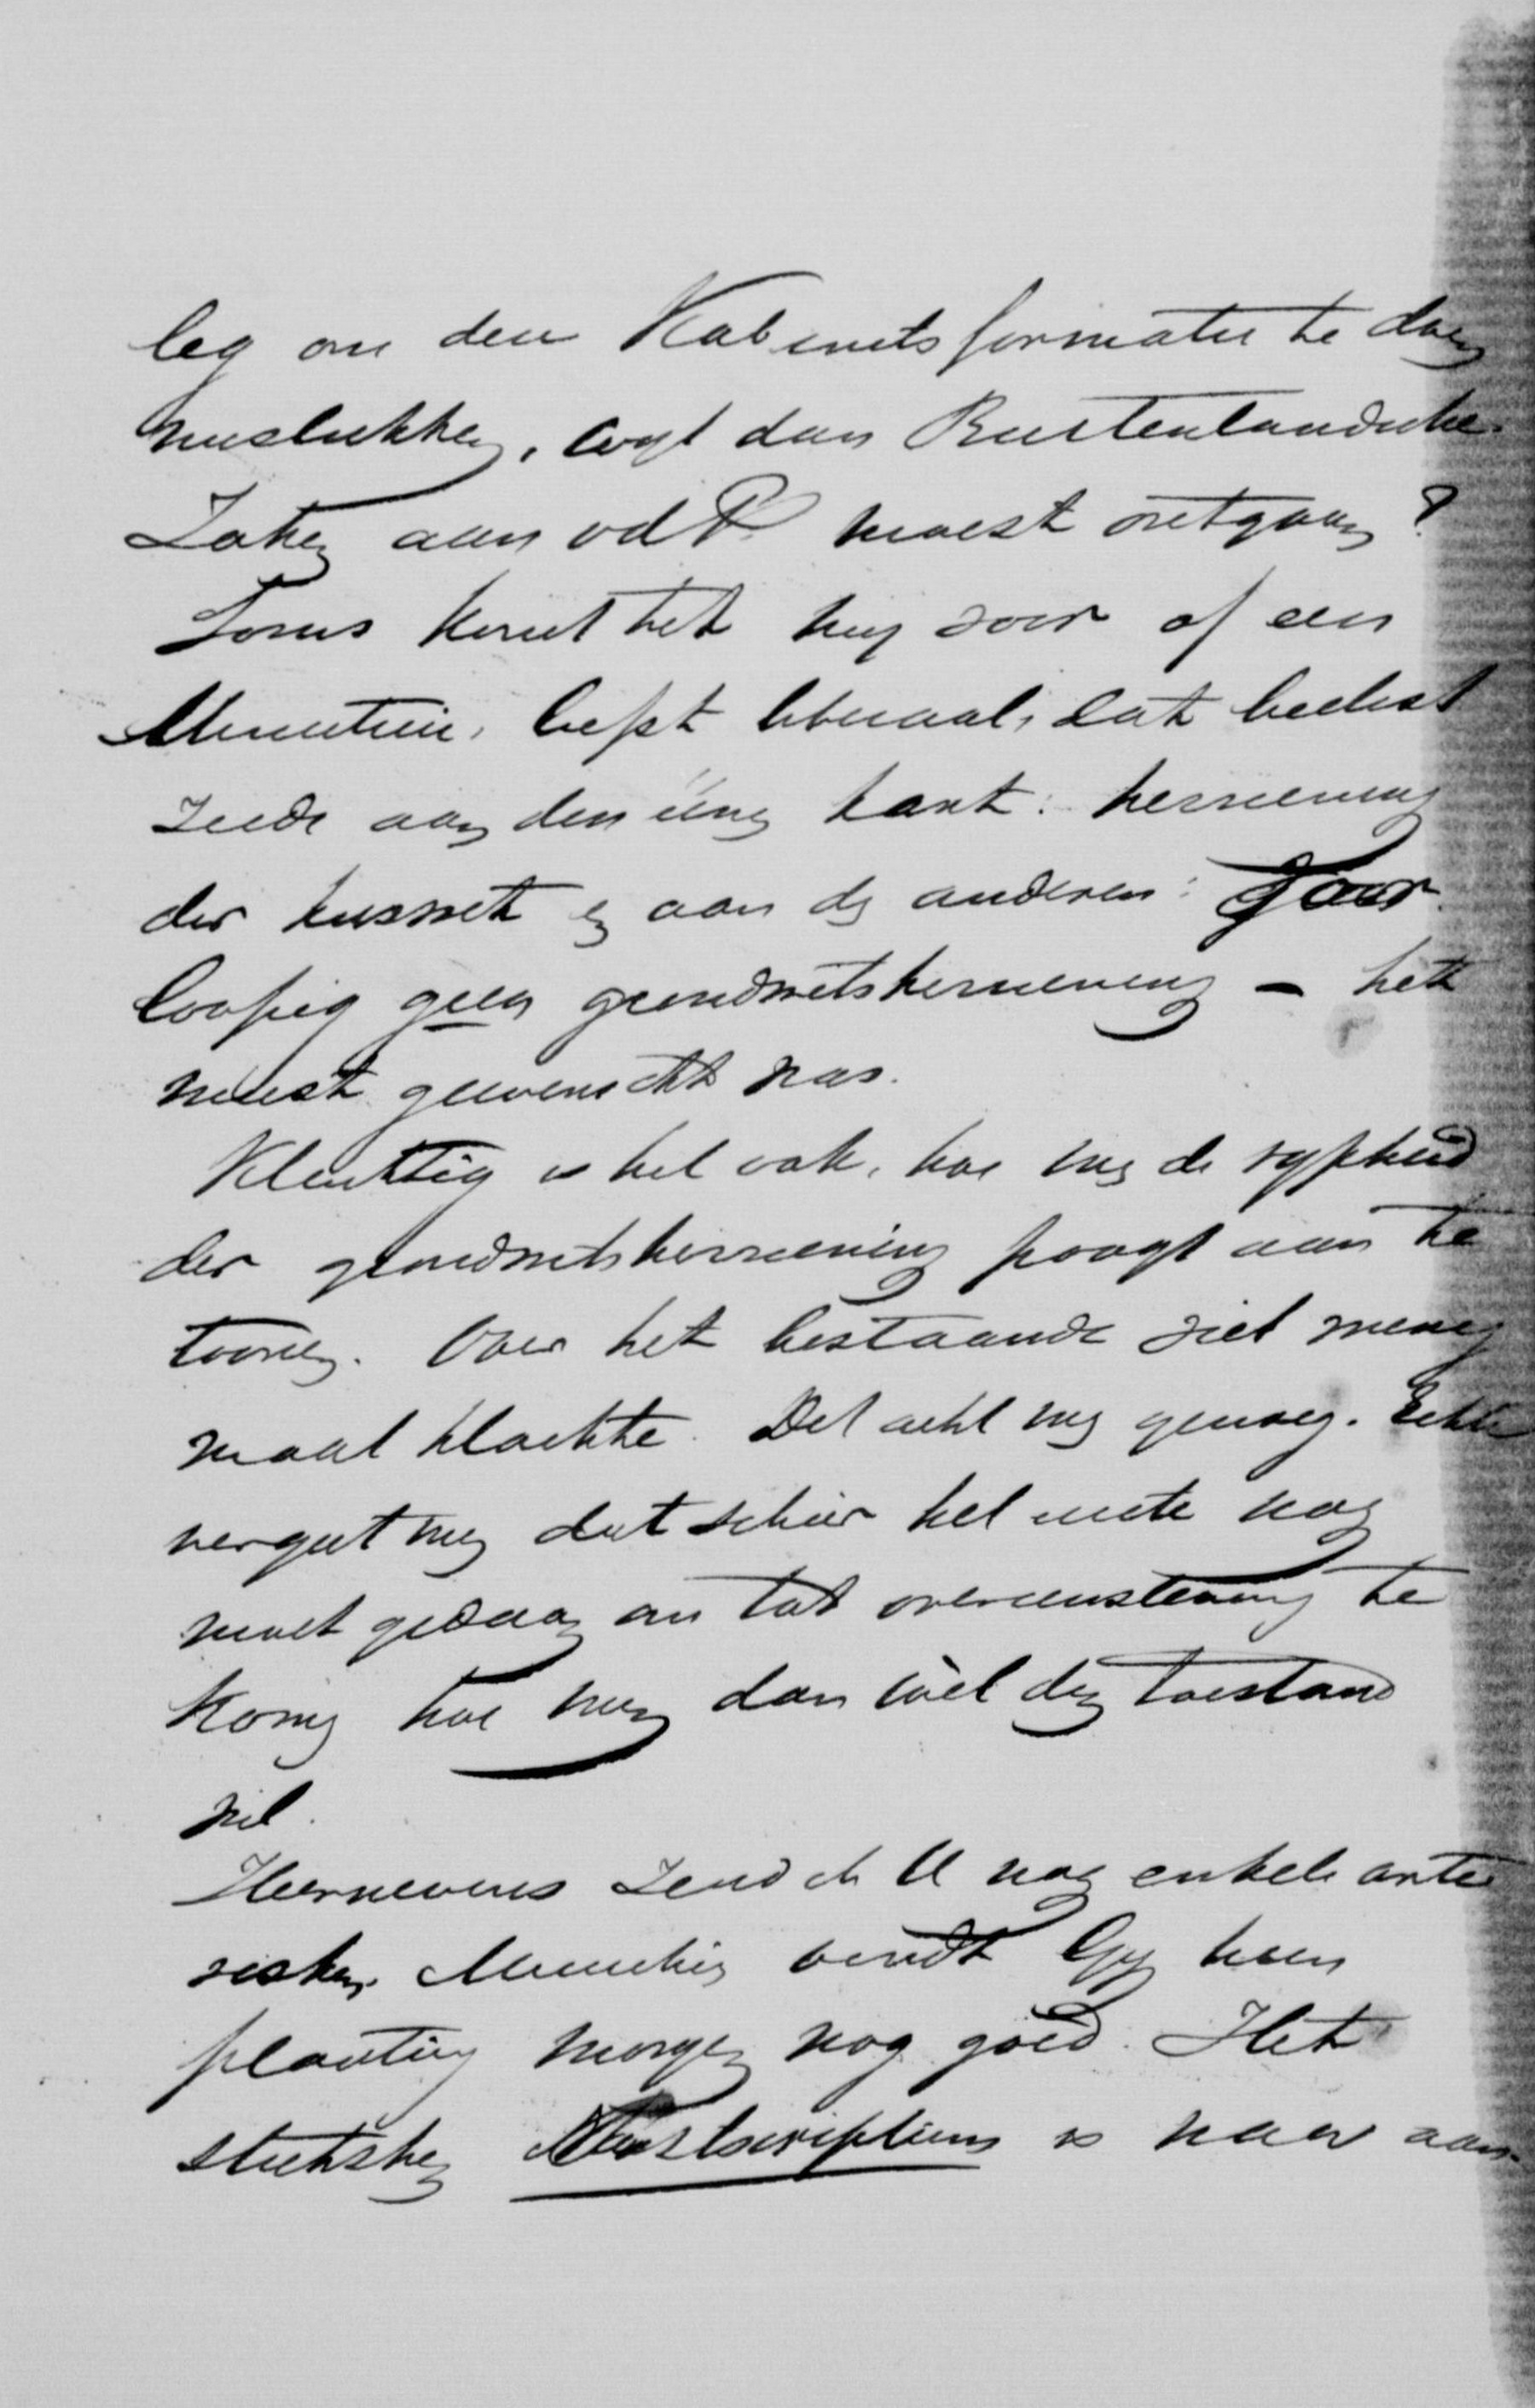 leg om den Kabinetsformateur te doen
mislukken, wijl dan Buitenlandsche
Zaken aan vdP moest ontgaan?
Soms komt het mij voor of een
Ministerie, liefst liberaal, dat besloot
zeide aan den eenen kant: herziening
der kieswet en aan den anderen: Voor
loopig geen grondwetsherziening – het
meest gewenscht was.
Kluchtig is het ook, hoe men de rijpheid
der grondwetsherziening poogt aan te
toonen. Over het bestaande viel menig
maal klachte. Dit acht men genoeg. Echter
vergeet men dat schier het meeste nog
moet gedaan om tot overeenstemming te
komen hoe men dan wèl den toestand
wil.
Hiernevens zend ik U nog enkele
Misschien vindt Gij hun
plaatsing morgen nog goed. Het
stuksken Postscriptum is naar aan-